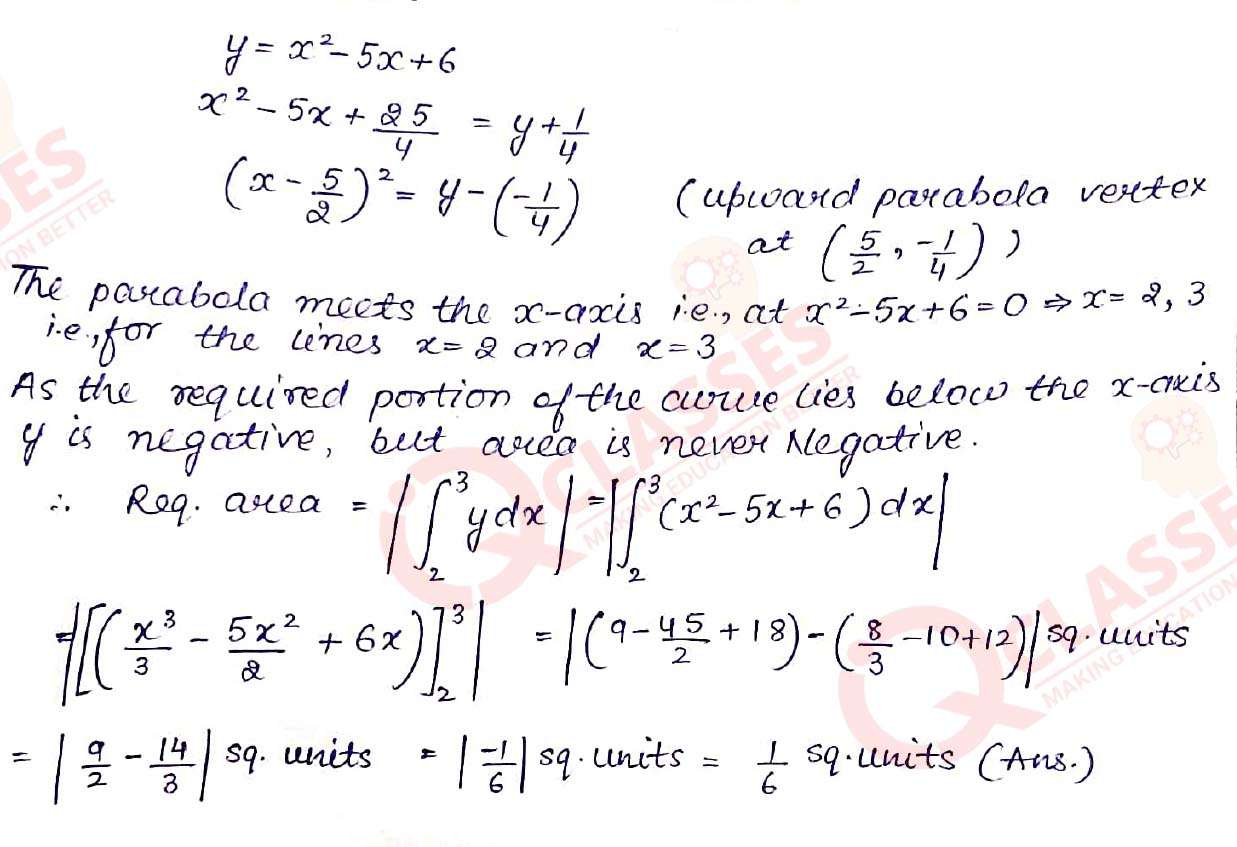 y = x² - 5x + 6
x² - 5x + 25/4 = y + 1/4
(x - 5/2)² = y - (-1/4) (upward parabola vertex
at (5/2, -1/4))
The parabola meets the x-axis i.e., at x² - 5x + 6 = 0 ⇒ x = 2, 3
i.e., for the lines x = 2 and x = 3
As the required portion of the curve lies below the x-axis
y is negative, but area is never Negative.
∴ Req. area = |∫₂³ y dx| = |∫₂³ (x² - 5x + 6) dx|
= |[(x³/3 - 5x²/2 + 6x)]₂³| = |(9 - 45/2 + 18) - (8/3 - 10 + 12)| sq. units
= |9/2 - 14/3| sq. units = |-1/6| sq. units = 1/6 sq. units (Ans.)
SES
ION BETTER
CLASSES
MAKING EDUCATION BETTER
CLASSE
MAKING EDUCATION